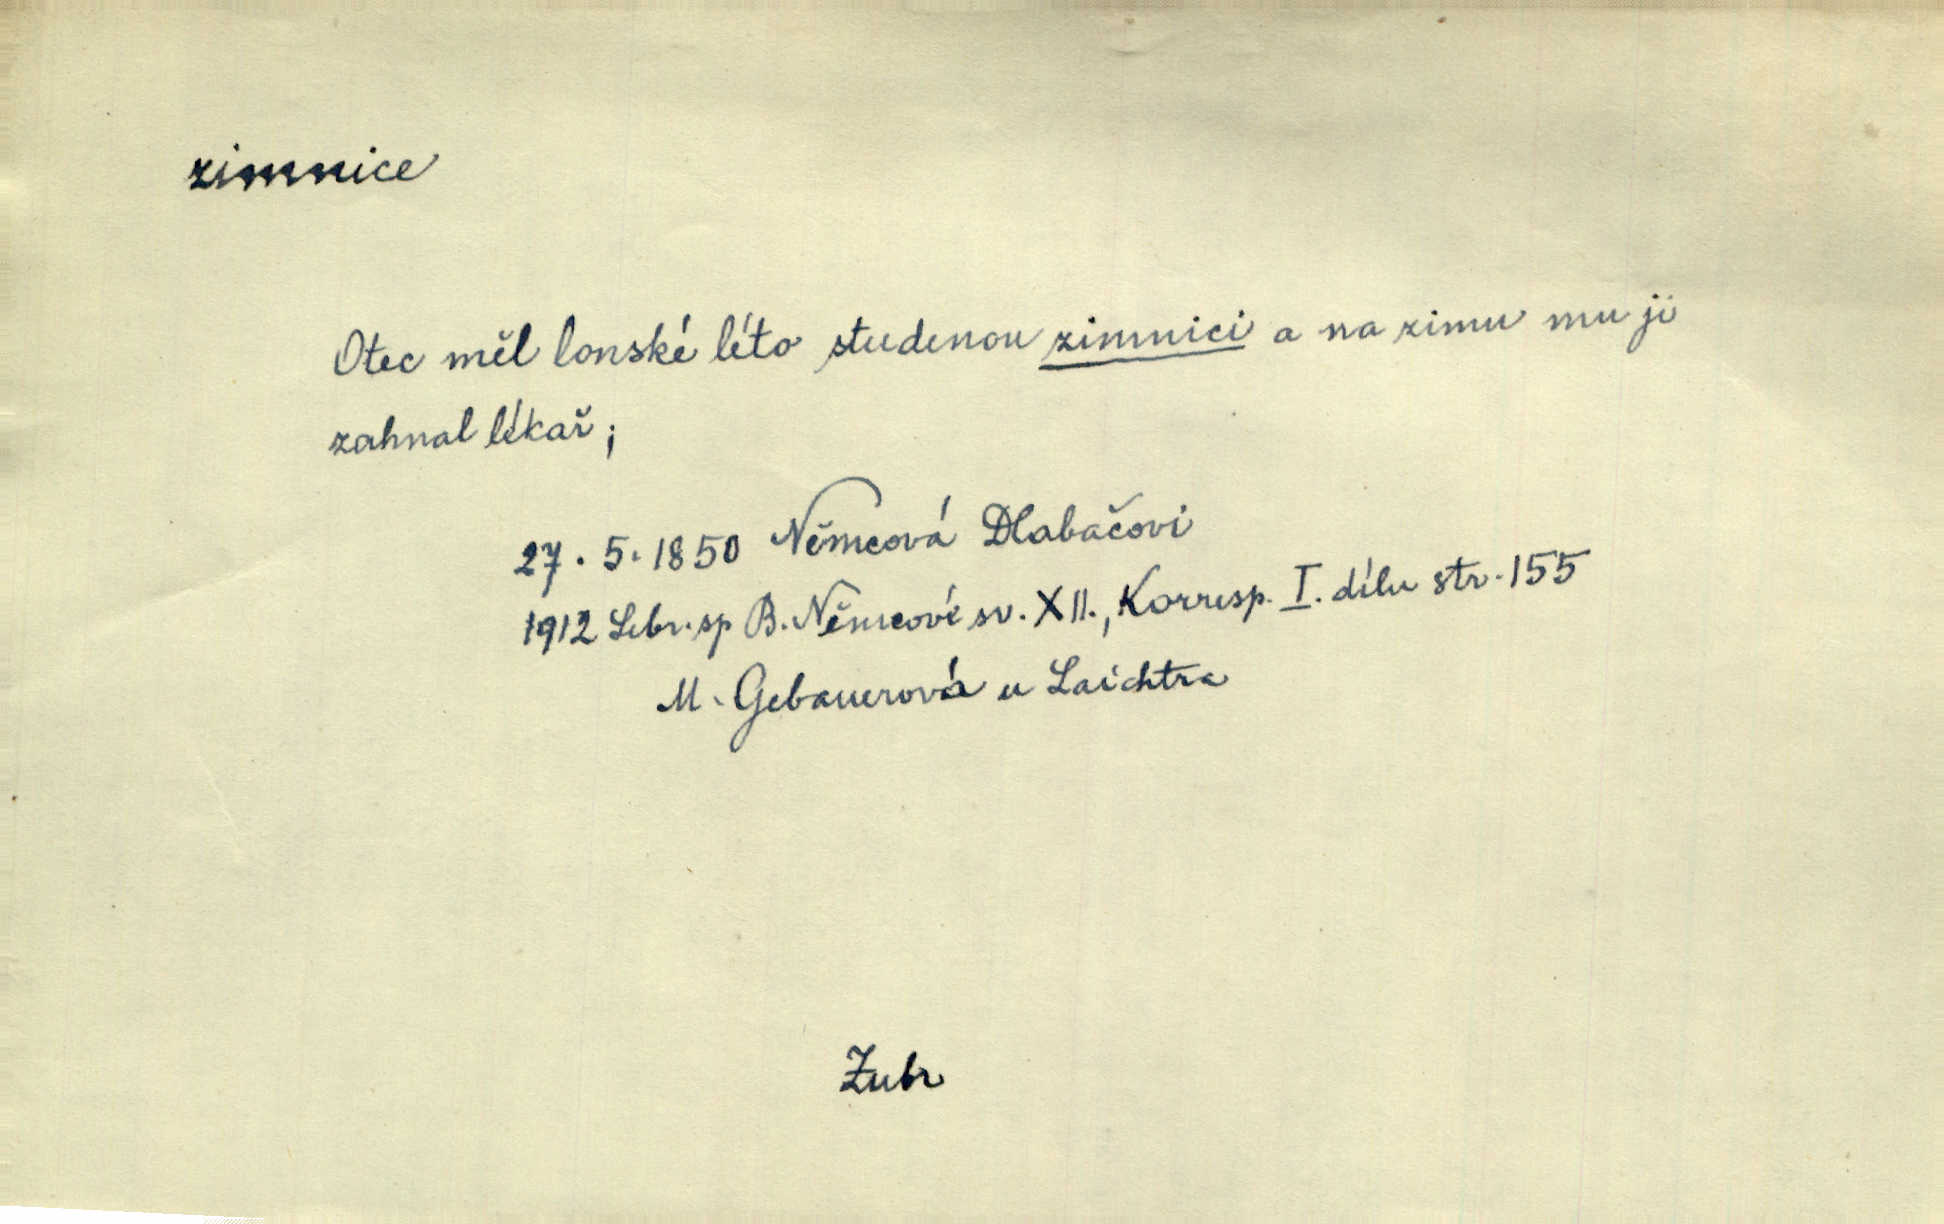 zimnice
Otec měl lonské léto studenou zimnici a na zimu mu ji
zahnal lékař;
27. 5. 1850 Němcová Dlabačovi
1912 Sebr. sp B. Němcové sv. XII., Korresp. I. dílu str. 155
M. Gebauerová u Laichtra
Zubr